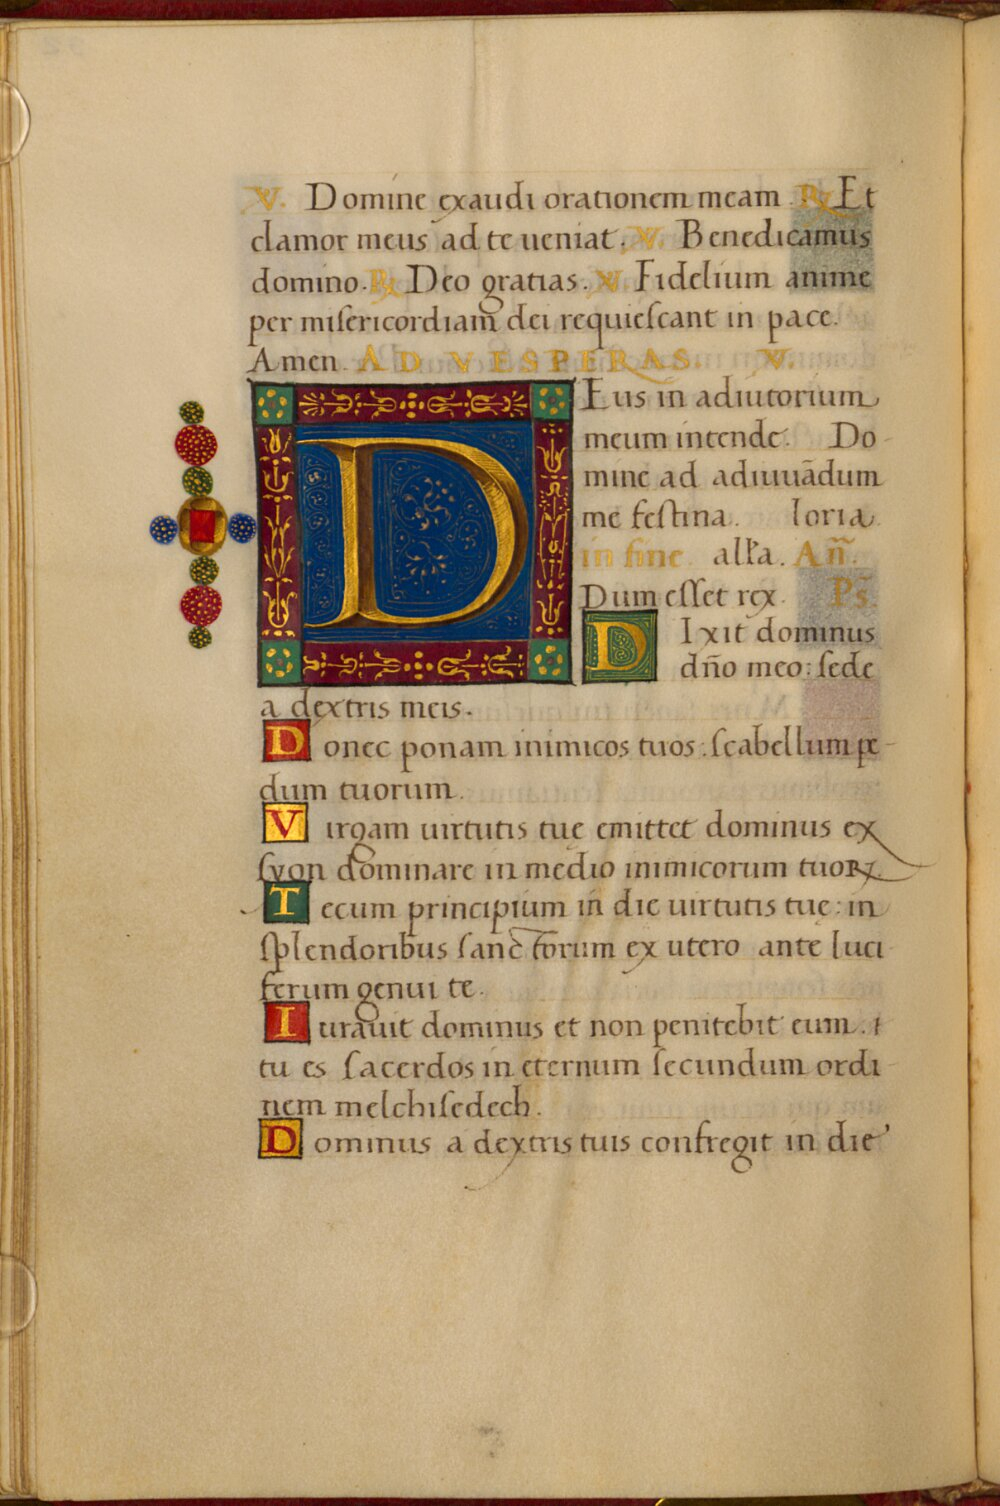 V. Domine exaudi orationem meam. R Et
clamor meus ad te ueniat. V. Benedicamus
domino. R Deo gratias. V Fidelium anime
per misericordiam dei requiescant in pace.
Amen. AD VESPERAS. V.
DEus in adiutorium
meum intende. Do-
mine ad adiuuādum
me festina. loria
in fine all'a. Añ.
Dum esset rex. Ps.
DIxit dominus
dño meo: sede
a dextris meis.
Donec ponam inimicos tuos: scabellum pe-
dum tuorum.
Virgam uirtutis tuę emittet dominus ex
syon dominare in medio inimicorum tuoꝝ.
Tecum principium in die uirtutis tue: in
splendoribus sanctorum ex utero ante luci
ferum genui te.
Iurauit dominus et non penitebit eum. :
tu es sacerdos in eternum secundum ordi-
nem melchisedech.
Dominus a dextris tuis confregit in die